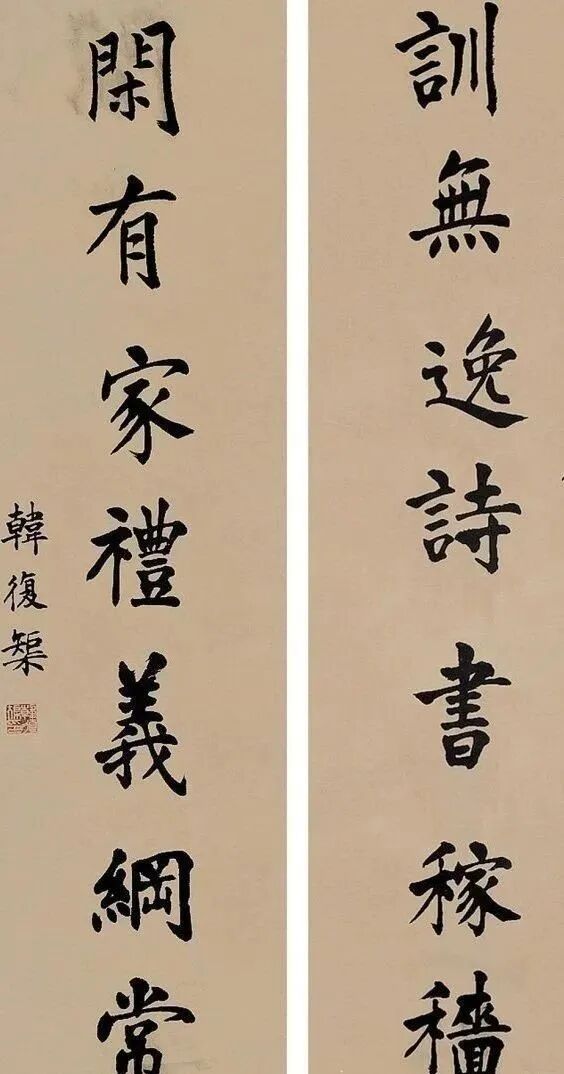 訓無逸詩書稼穡
閑有家禮義綱常
韓復榘